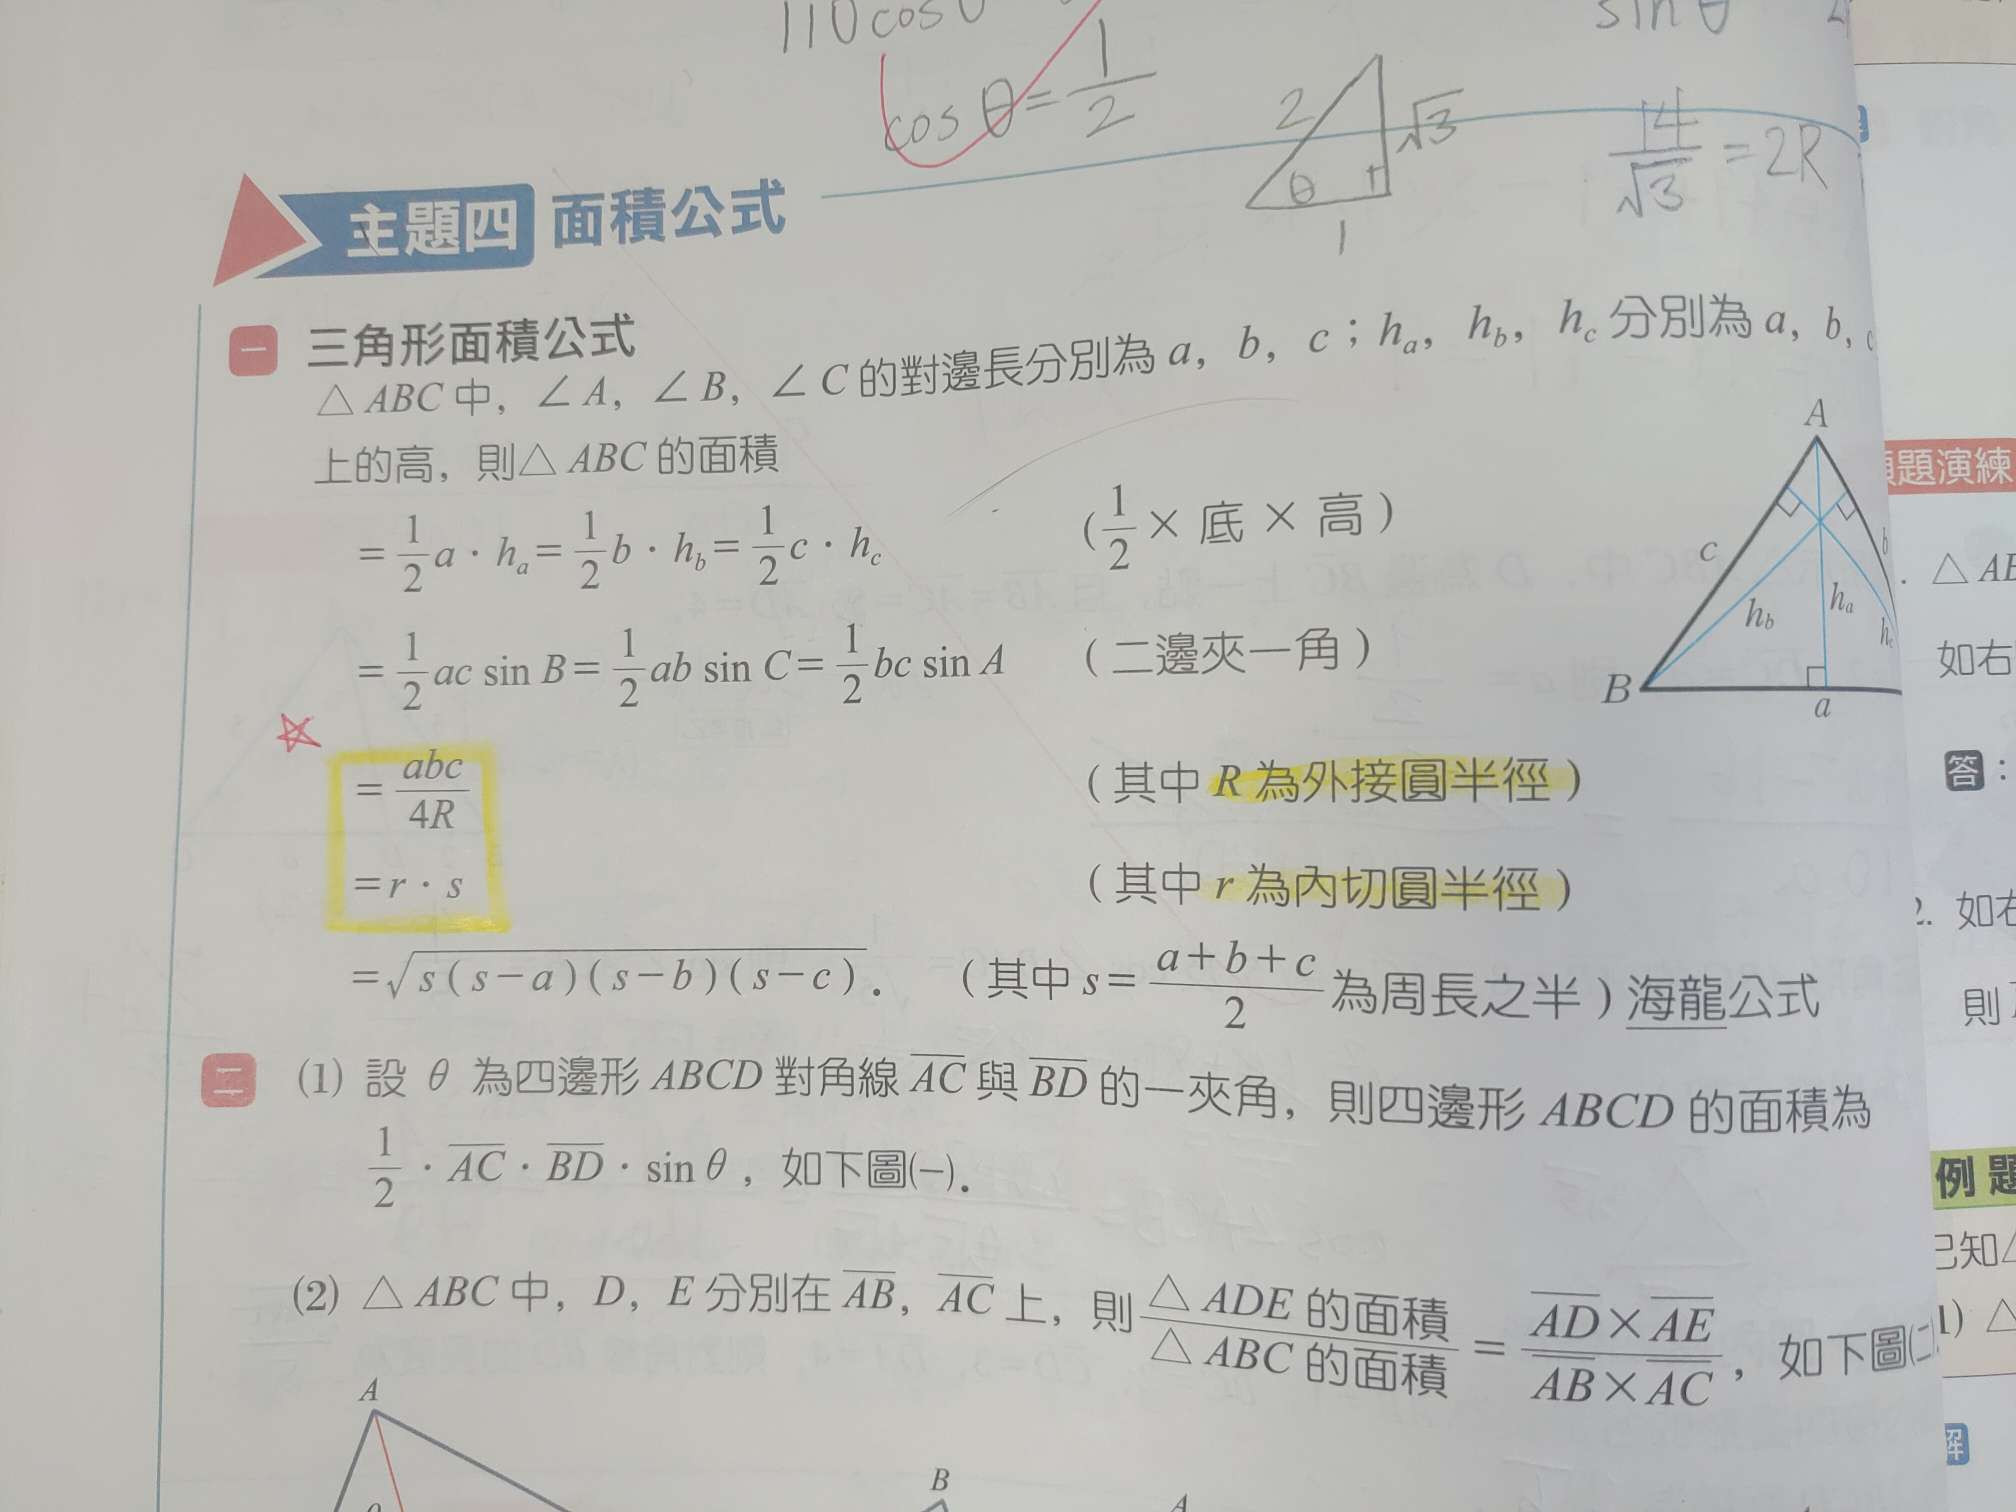 110cosθ
sinθ
cosθ=1/2
2
√3
θ
1
14/√3=2R
主題四 面積公式
一 三角形面積公式
△ABC中，∠A，∠B，∠C的對邊長分別為a，b，c；hₐ，h_b，h_c分別為a，b，c
上的高，則△ABC的面積
=1/2 a·hₐ=1/2 b·h_b=1/2 c·h_c （1/2×底×高）
=1/2 ac sin B=1/2 ab sin C=1/2 bc sin A （二邊夾一角）
=abc/4R （其中R為外接圓半徑）
=r·s （其中r為內切圓半徑）
=√s(s−a)(s−b)(s−c). （其中s=a+b+c/2為周長之半）海龍公式
A
c
b
h_b
hₐ
h_c
B
a
二 (1) 設θ為四邊形ABCD對角線AC與BD的一夾角，則四邊形ABCD的面積為
1/2·AC·BD·sinθ，如下圖(一).
(2) △ABC中，D，E分別在AB，AC上，則△ADE的面積/△ABC的面積=AD×AE/AB×AC，如下圖(二)
A
B
A
題演練
. △AB
如右
答：
2. 如右
則
例題
已知△
1) △
解